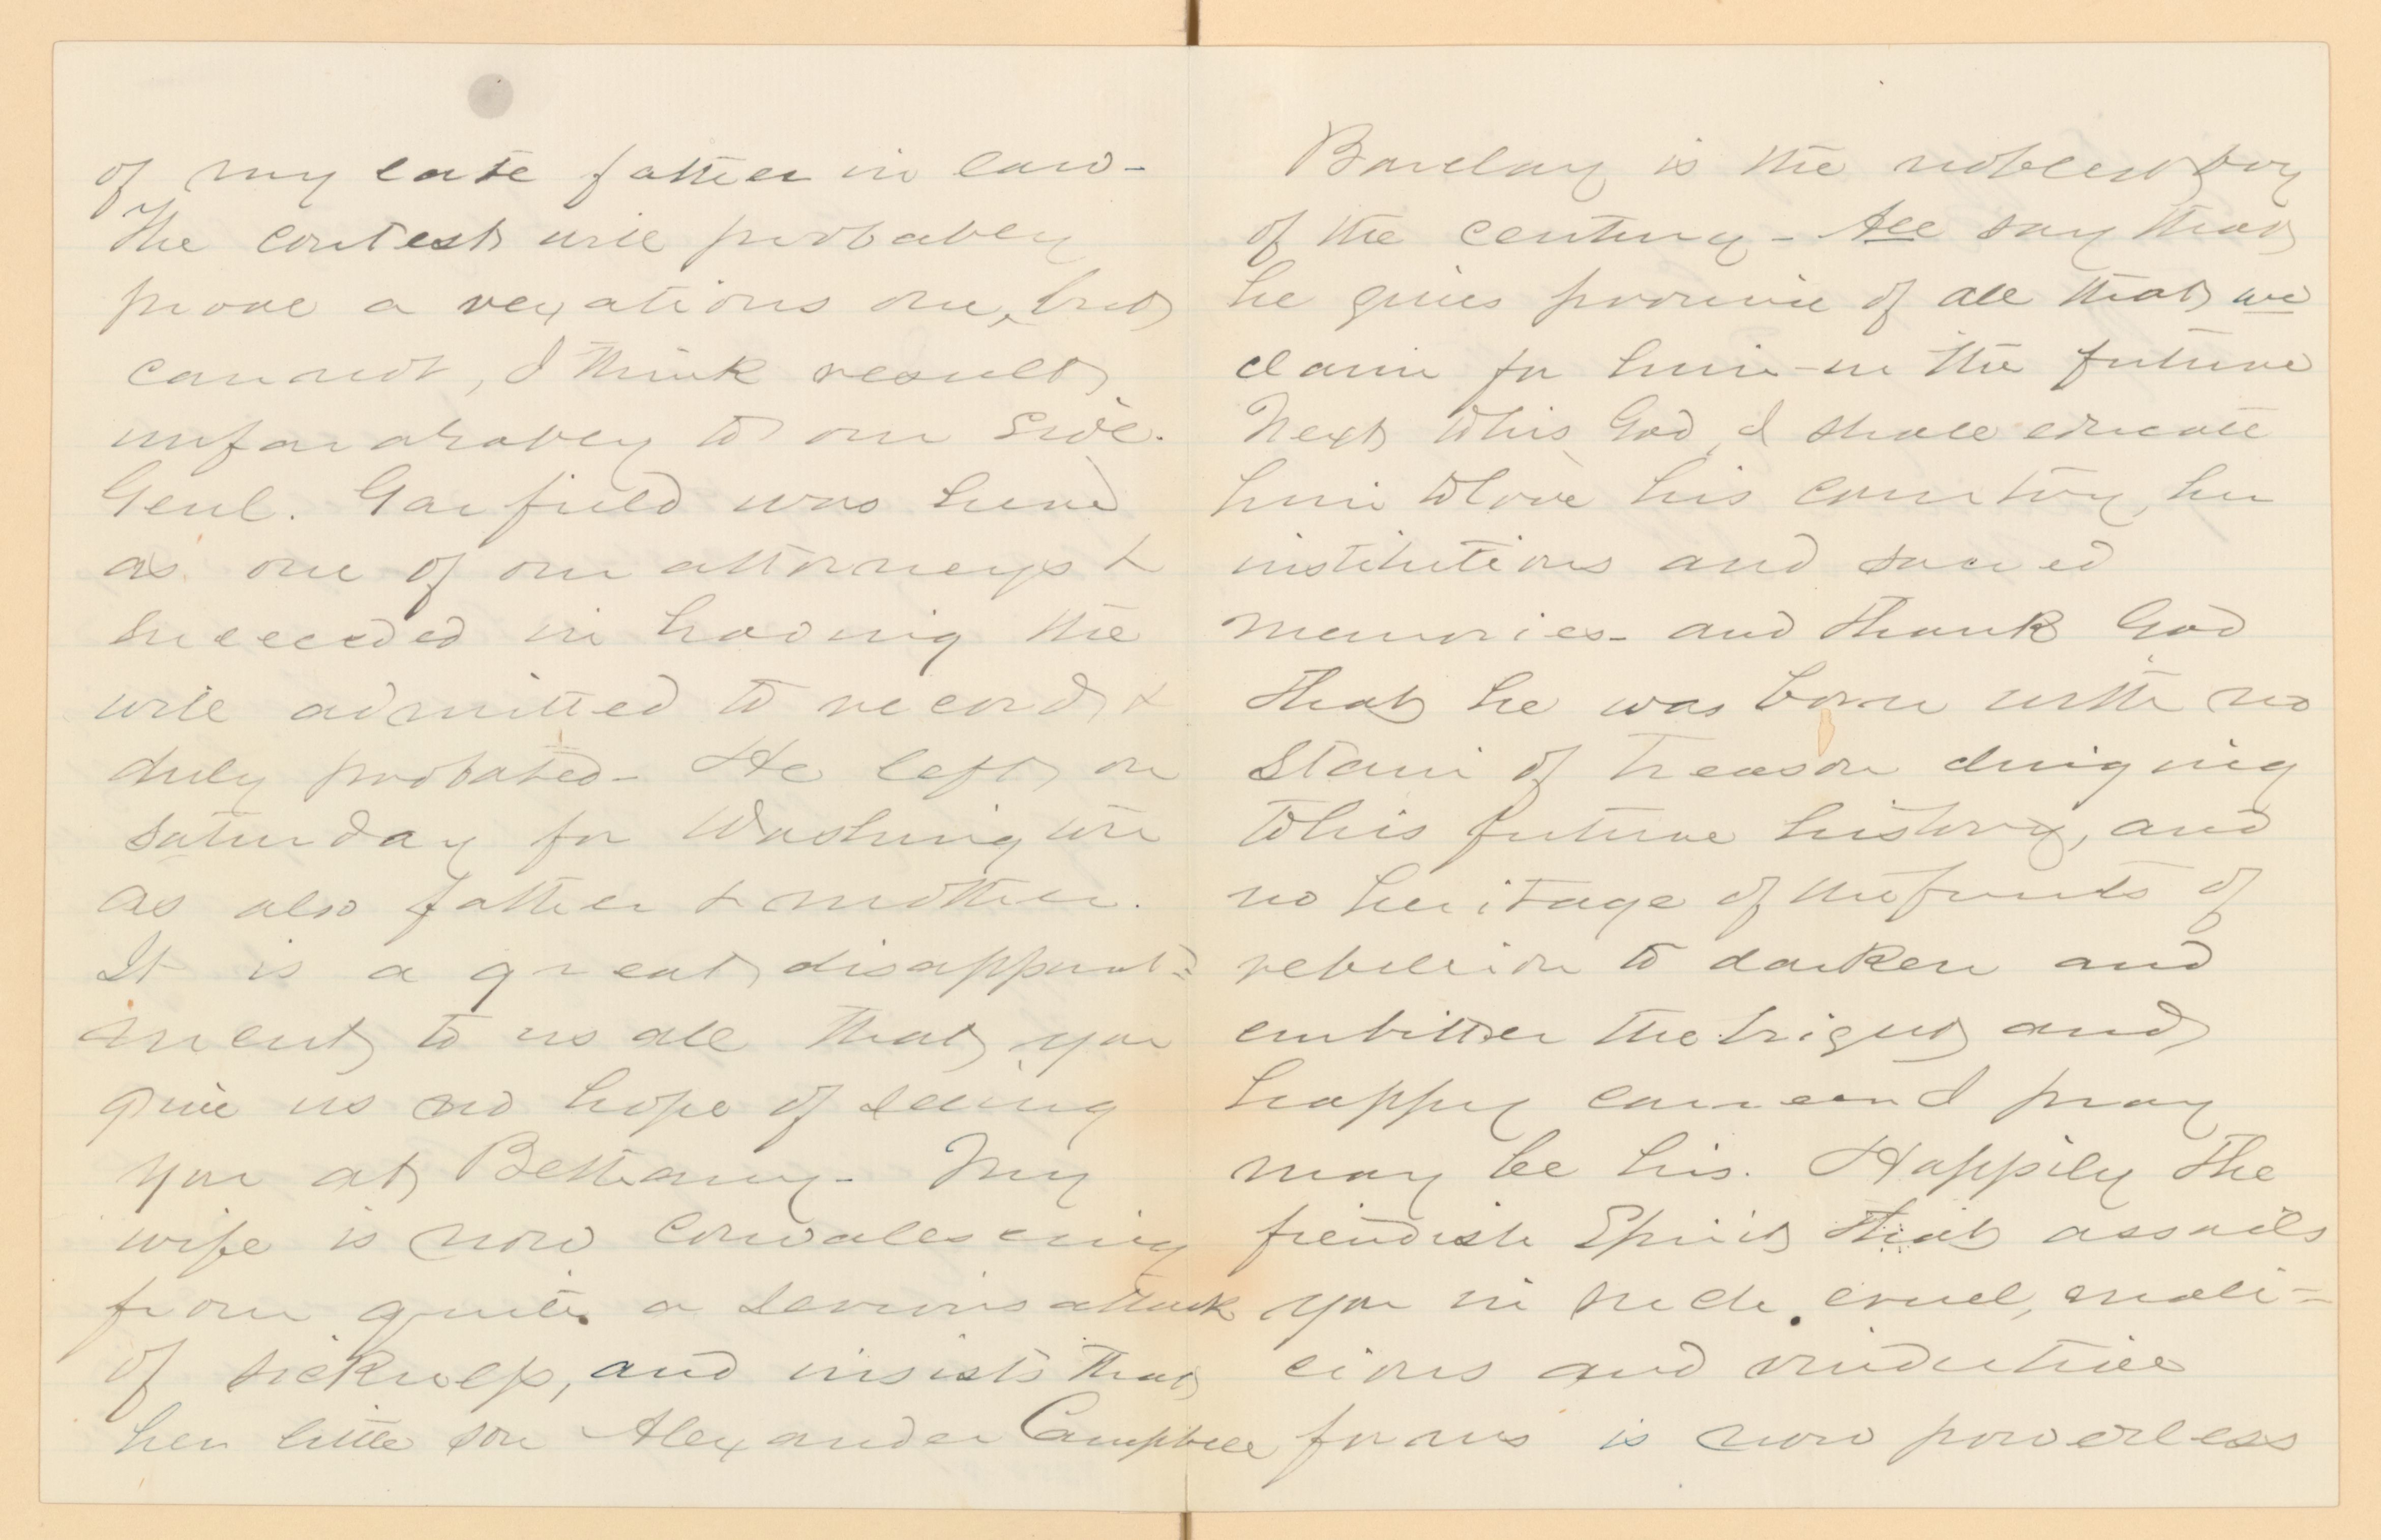 of my late father in law-
The contest will probably
prove a vexatious one, but
cannot, I think result
unfavorably to our side.
Genl. Garfield was here
as one of our attorneys &
succeeded in having the
will admitted to record &
duly probated- He left on
Saturday for Washington
as also father & mother.
It is a great disappoint=
ment to us all that you
give us no hope of seeing
you at Bethany- My
wife is now convalescing
from quite a serious attack
of sickness, and insists that
her little son Alexander Campbell
Barclay is the noblest boy
of the century- All say that
he gives promise of all that we
claim for him-in the future
Next to his God, I shall educate
him to love his country, her
institutions and sacred
memories- and thank God
that he was born with no
stain of Treason clinging
to his future history, and
no heritage of the fruits of
rebellion to darken and
embitter the bright and
happy career I pray
may be his. Happily the
fiendish Spirit that assails
you in such cruel, mali=
cious and vindictive
forms is now powerless